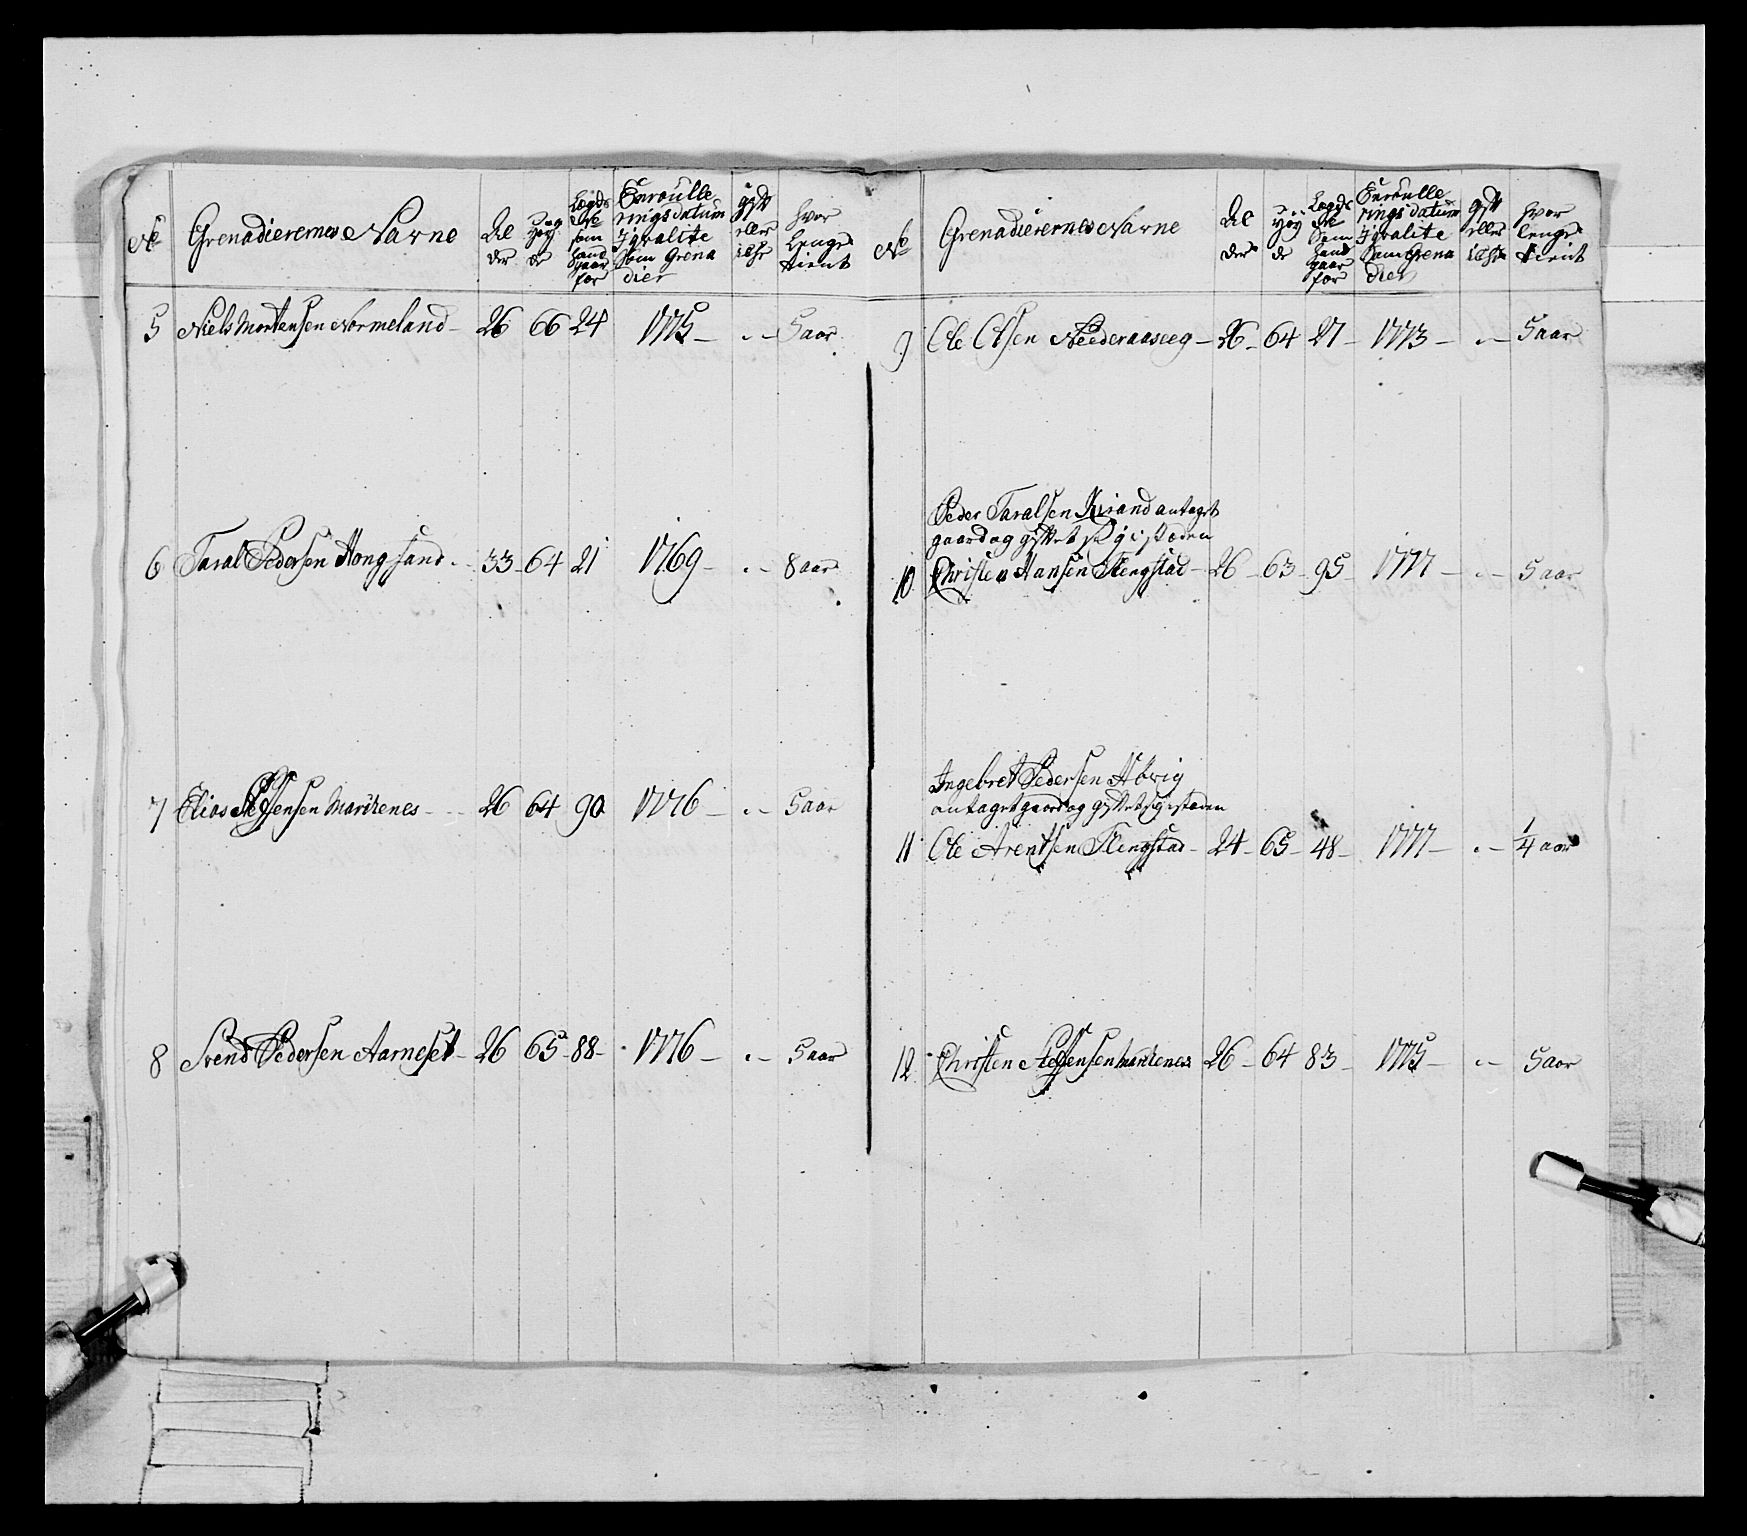 No Grenadierernes Navne Al der Høy de Lægds No som hand staar for Enroulle rings datum I qvalite som Grena dier gift eller ickje hvor Lenge tient
5 Niels Mortensen Normeland 26 66 24 1775 " 5 aar
6 Taral Pedersen Hongsand 33 64 21 1769 " 8 aar
7 Elias Marckenes 26 64 90 1776 " 5 aar
8 Svend Pedersen Aarneset 26 65 88 1776 " 5 aar
No Grenadierernes Navne Al der Høy de Lægds No som hand staar for Enroulle rings datum I qvalite som Grena dier gift eller ickje hvor lenge tient
9 Ole Olsen Nederaaseeg 26 64 27 1773 " 5 aar
Peder Taralsen antaget
gaard og giftet sig i stæden
10 Christen Hansen Stengstad 26 63 95 1777 " 5 aar
Ingebret Pedersen
antaget gaard og giftet sig i stæden
11 Ole Arentsen Stengstad 24 65 48 1777 " 1/4 aar
12 Christen Marckenes 26 64 83 1775 " 5 aar